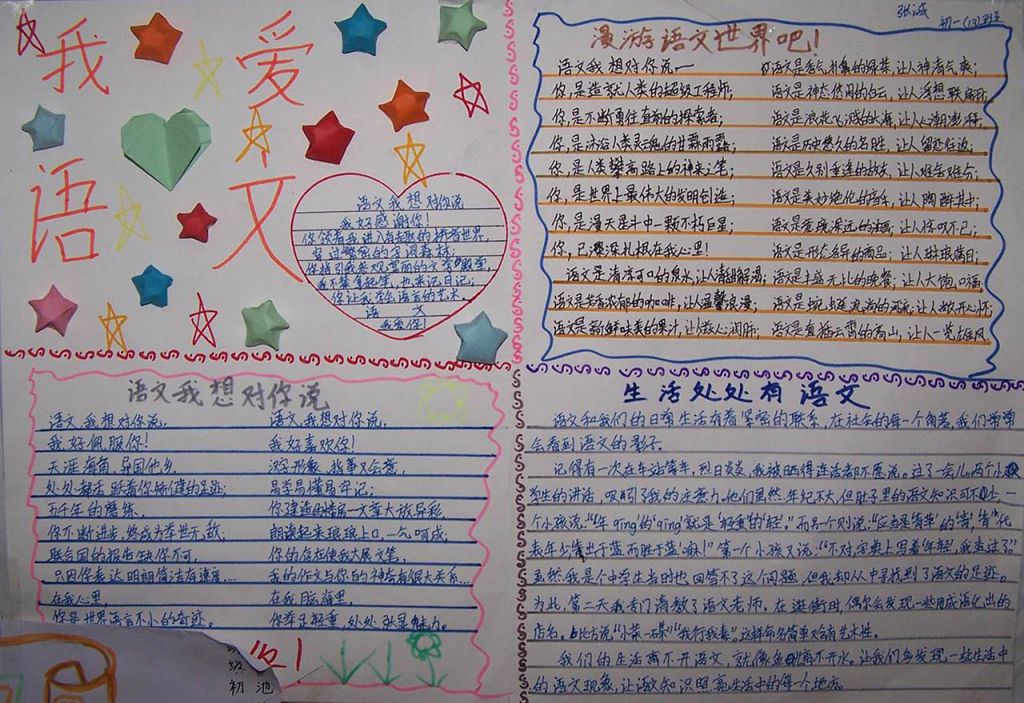 我爱
语文
语文我想对你说
我好感谢你!
你领着我进入有趣的拼音世界,
穿过繁忙的字词森林;
你指引我参观里面的文学殿堂,
我不禁拿起笔,也来记日记;
你让我学会语言的艺术。
语 文
我爱你!
张诚
初一(13)班
漫游语文世界吧!
语文我想对你说,—
你,是造就人类的超级工程师;
你,是不断勇往直前的探索者;
你,是沐浴人类灵魂的甘霖雨露;
你,是人类攀高路上的神来之笔;
你,是世界上最伟大的发明创造;
你,是漫天星斗中一颗不朽巨星;
你,已深深扎根在我心里!
语文是清凉可口的泉水,让人清甜解渴;
语文是芳香浓郁的咖啡,让人温馨浪漫;
语文是新鲜味美的果汁,让人滋心润肺;
语文是香气扑鼻的绿茶,让人神清气爽;
语文是神态悠闲的白云,让人浮想联翩;
语文是浪花飞溅的大海,让人心潮澎湃;
语文是历史悠久的名胜,让人留恋往返;
语文是久别重逢的故友,让人难舍难分;
语文是美妙绝伦的音乐,让人陶醉其中;
语文是意境深远的油画,让人惊叹不已;
语文是形态各异的商品,让人琳琅满目;
语文是丰盛无比的晚餐,让人大饱口福;
语文是蜻蜓点
语文是直插云霄的高山,让人一览雄风。
语文我想对你说
语文,我想对你说,
我好佩服你!
天涯海角,异国他乡,
处处都活跃着你矫健的足迹;
五千年的磨练,
你不断进步,终成为举世无敌;
联合国的报告缺你不可,
只因你表达明朗简洁有速度…
在我心里,
你是世界语言不小的奇迹。
语文,我想对你说,
我好喜欢你!
汉字形象,找事又会意,
易学易懂易牢记;
你建造的楼房—文章大放异彩,
朗读起来琅琅上口,一气呵成;
你的存在使我大展文笔,
我的作文与你的神奇有很大关系…
在我脑海里,
你举足轻重,处处张显魅力。
级
初 池
生活处处有语文
语文和我们的日常生活有着紧密的联系,在社会的每一个角落,我们常常
会看到语文的影子。
记得有一次在车站等车,烈日炎炎,我被晒得连话都不愿说。过了一会儿,两个小
学生的讲话,吸引了我的注意力。他们虽然年纪不大,但肚子里的语文知识可不少,一
个小孩说:“‘年qing’的‘qing’就是‘轻重’的‘轻’,”而另一个则说:“应当是‘青草’的‘青’,‘青’代
表年少,‘青出于蓝而胜于蓝’嘛!”第一个小孩又说:“不对,字典上写着‘年轻’,我查过了”
虽然我是个中学生当时也回答不了这个问题,但我却从中寻找到了语文的足迹。
为此,第二天我专门请教了语文老师。在逛街时,偶尔会发现一些用成语化出的
店名。比方说“小菜一碟”“我行我素”。这样命名简单又富有艺术性。
我们的生活离不开语文,就像鱼离不开水。让我们多发现一些生活中
的语文现象,让语文知识照亮生活中的每一个地方。